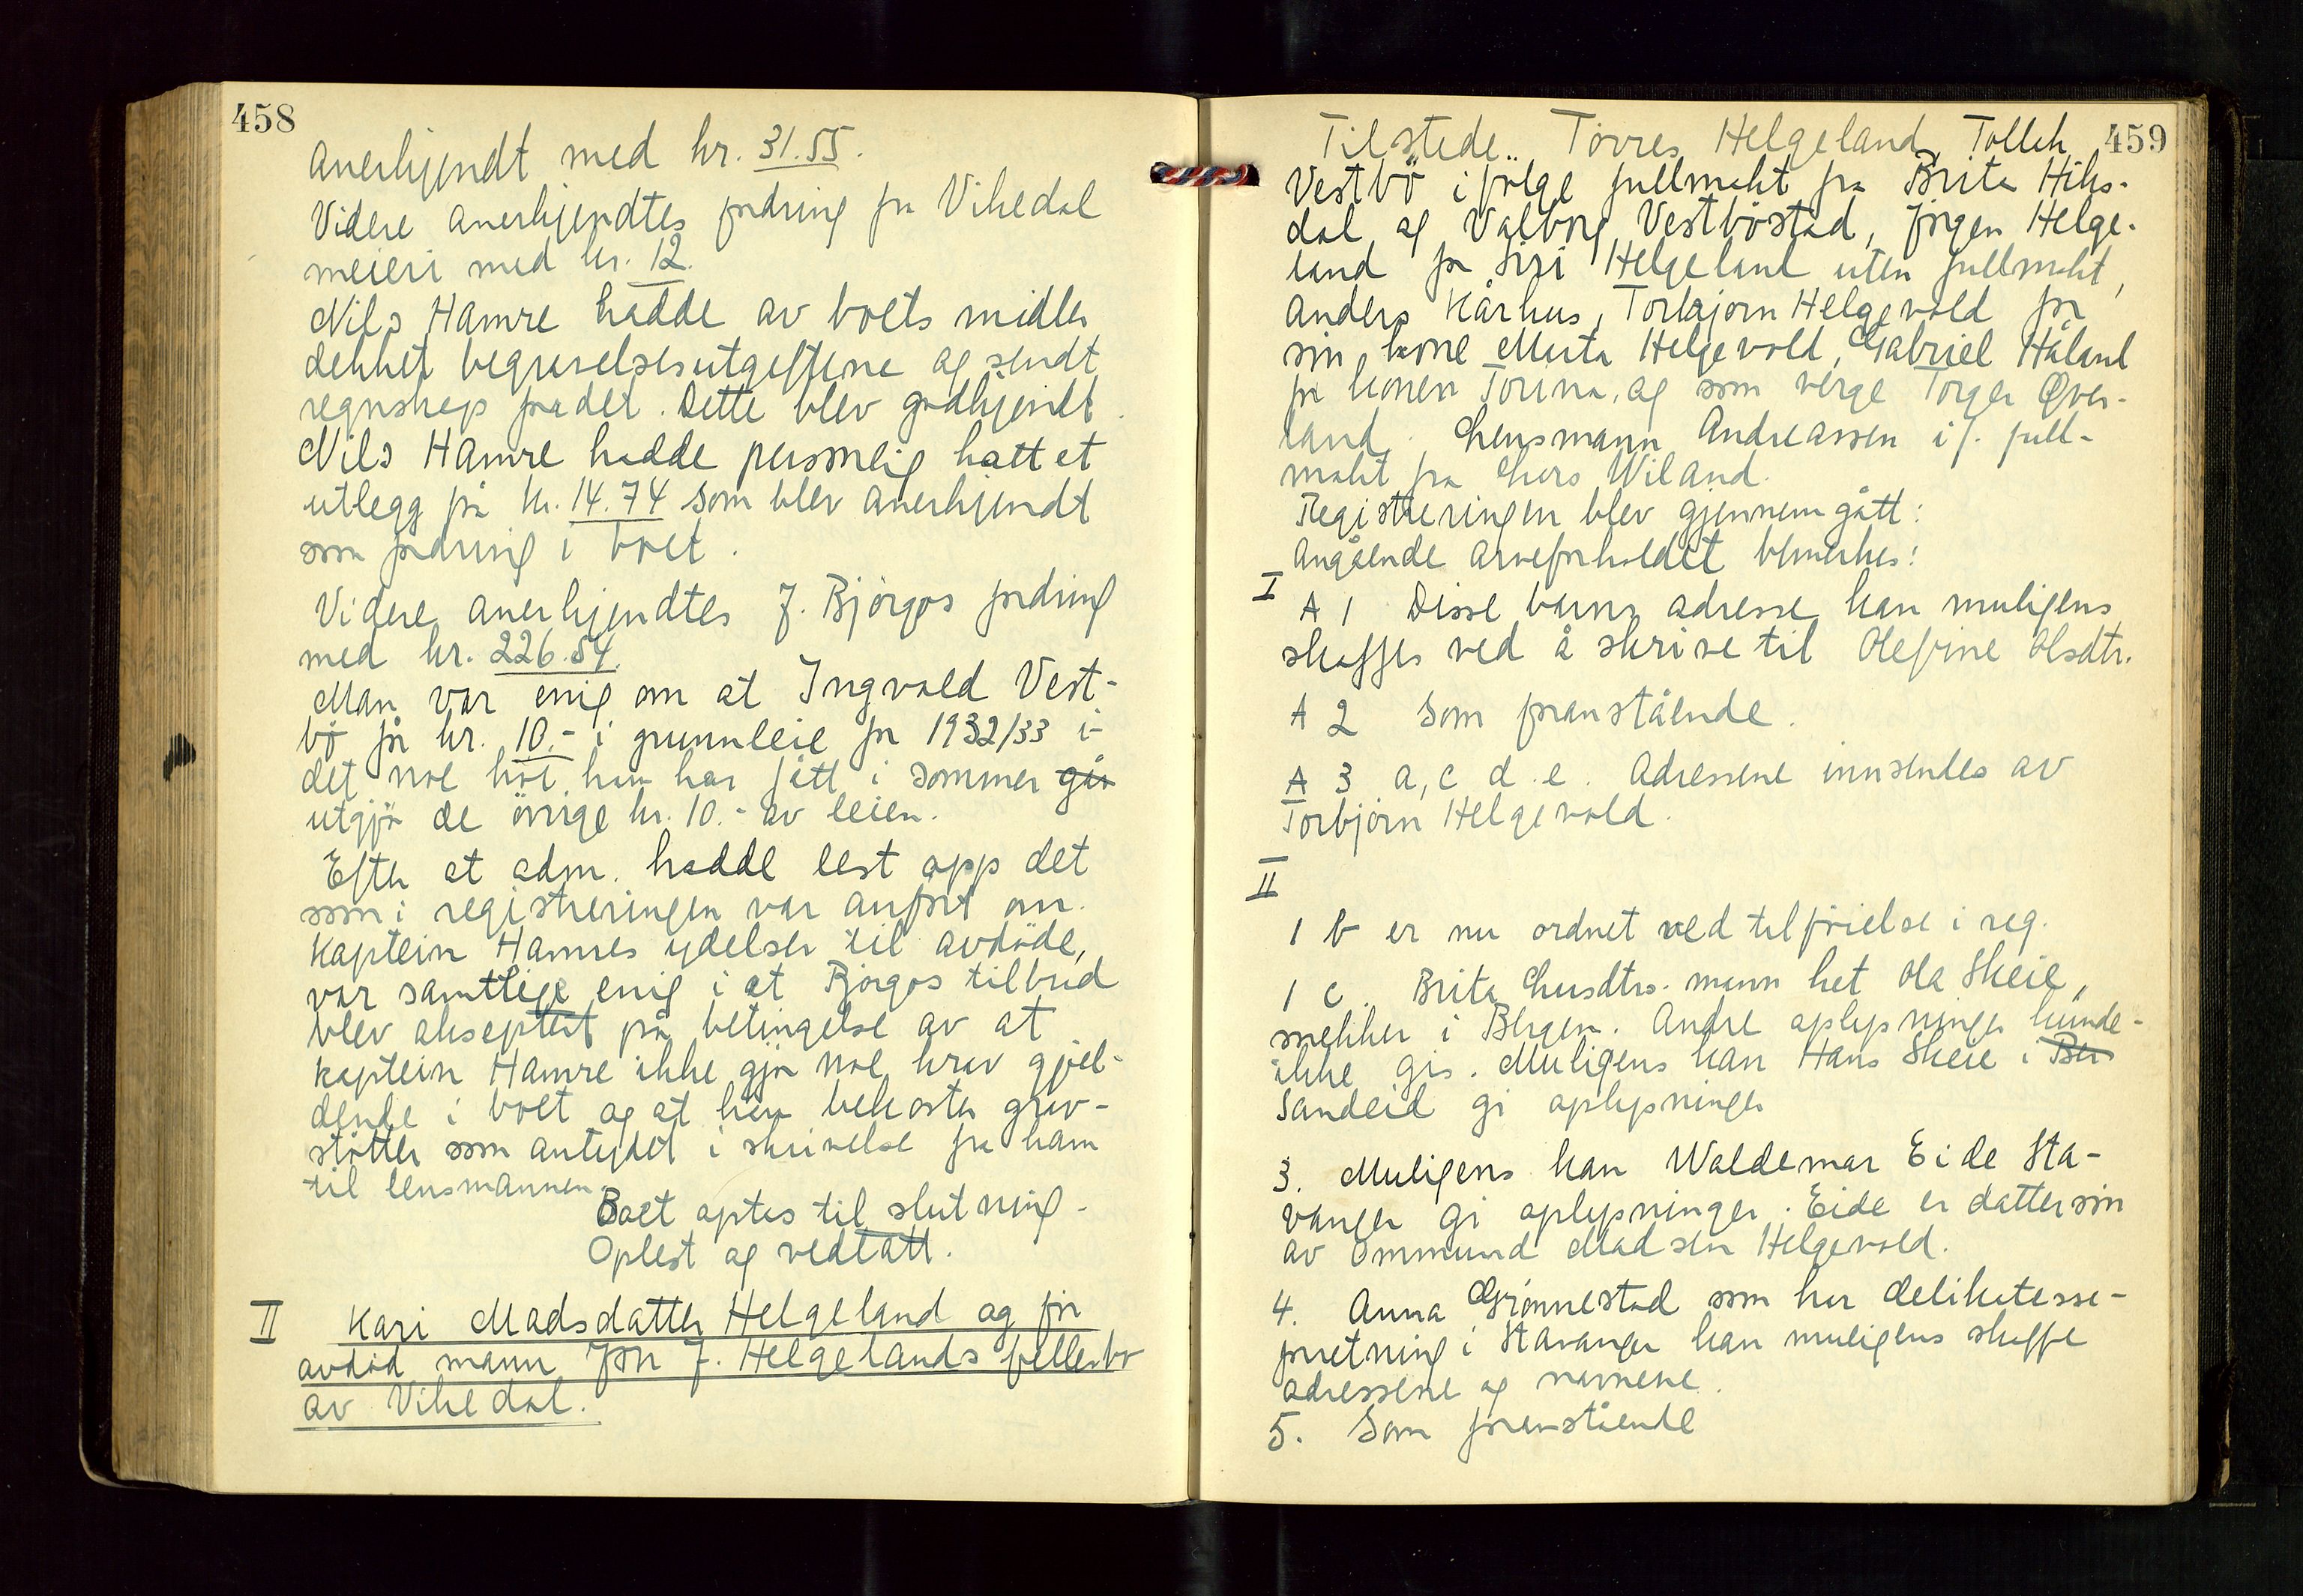 458
anerkjendt med kr. 31.55.
Videre anerkjendtes fordring fra Vikedal
meieri med kr. 12.
Nils Hamre hadde av boets midler
dekket begravelsesutgiftene og sendt
regnskap for det. Dette blev godkjendt.
Nils Hamre hadde personlig hatt et
utlegg på kr. 14.74 som blev anerkjendt
som fordring i boet.
Videre anerkjendtes J. Bjørgos fordring
med kr. 226.54.
Man var enig om at Ingvald Vest-
bø får kr. 10.- i grunnleie for 1932/33 i-
det noe høi han har fått i sommer går
utgjør de øvrige kr. 10.- av leien.
Efter at adm. hadde lest opp det
som i registreringen var anført om
kaptein Hamres ydelser til avdøde,
var samtlige enig i at Bjørgos tilbud
blev akseptert på betingelse av at
kaptein Hamre ikke gjør noe krav gjel-
dende i boet og at han bekoster grav-
støtter som antydet i skrivelse fra ham
til lensmannen.
Boet optas til slutning.
Oplest og vedtatt.
II Kari Madsdatter Helgeland og før
avdød mann Jon J. Helgelands fellesbo
av Vikedal.
459
Tilstede: Tørres Helgeland, Tollek
Vestbø ifølge fullmakt fra Brita Hiks-
dal og Valborg Vestbøstad, Jørgen Helge-
land for Siri Helgeland uten fullmakt,
Anders Kårhus, Torbjørn Helgevold for
sin kone Marta Helgevold, Gabriel Håland
for konen Torina, og som verge Torger Øver-
land. Lensmann Andreassen if. full-
makt fra Lars Wiland.
Registreringen blev gjennemgått:
Angående arveforholdet bemerkes:
I
A 1 Disse barns adresse kan muligens
skaffes ved å skrive til Olefine Olsdtr.
A 2 Som foranstående.
A 3 a, c d. e. Adressene innsendes av
Torbjørn Helgevold.
II
1 b er nu ordnet ved tilføielse i reg.
1 c. Brita Larsdtrs. mann het Ola Skeie,
mekker i Bergen. Andre oplysninger kunde
ikke gis. Muligens kan Hans Skeie i Ber
Sandeid gi oplysninger
3. Muligens kan Waldemar Eide Sta-
vanger gi oplysninger. Eide er dattersøn
av Ommund Madsen Helgevold.
4. Anna Grønnestad som har delikatesse-
forretning i Stavanger kan muligens skaffe
adressene og navnene.
5. Som foranstående